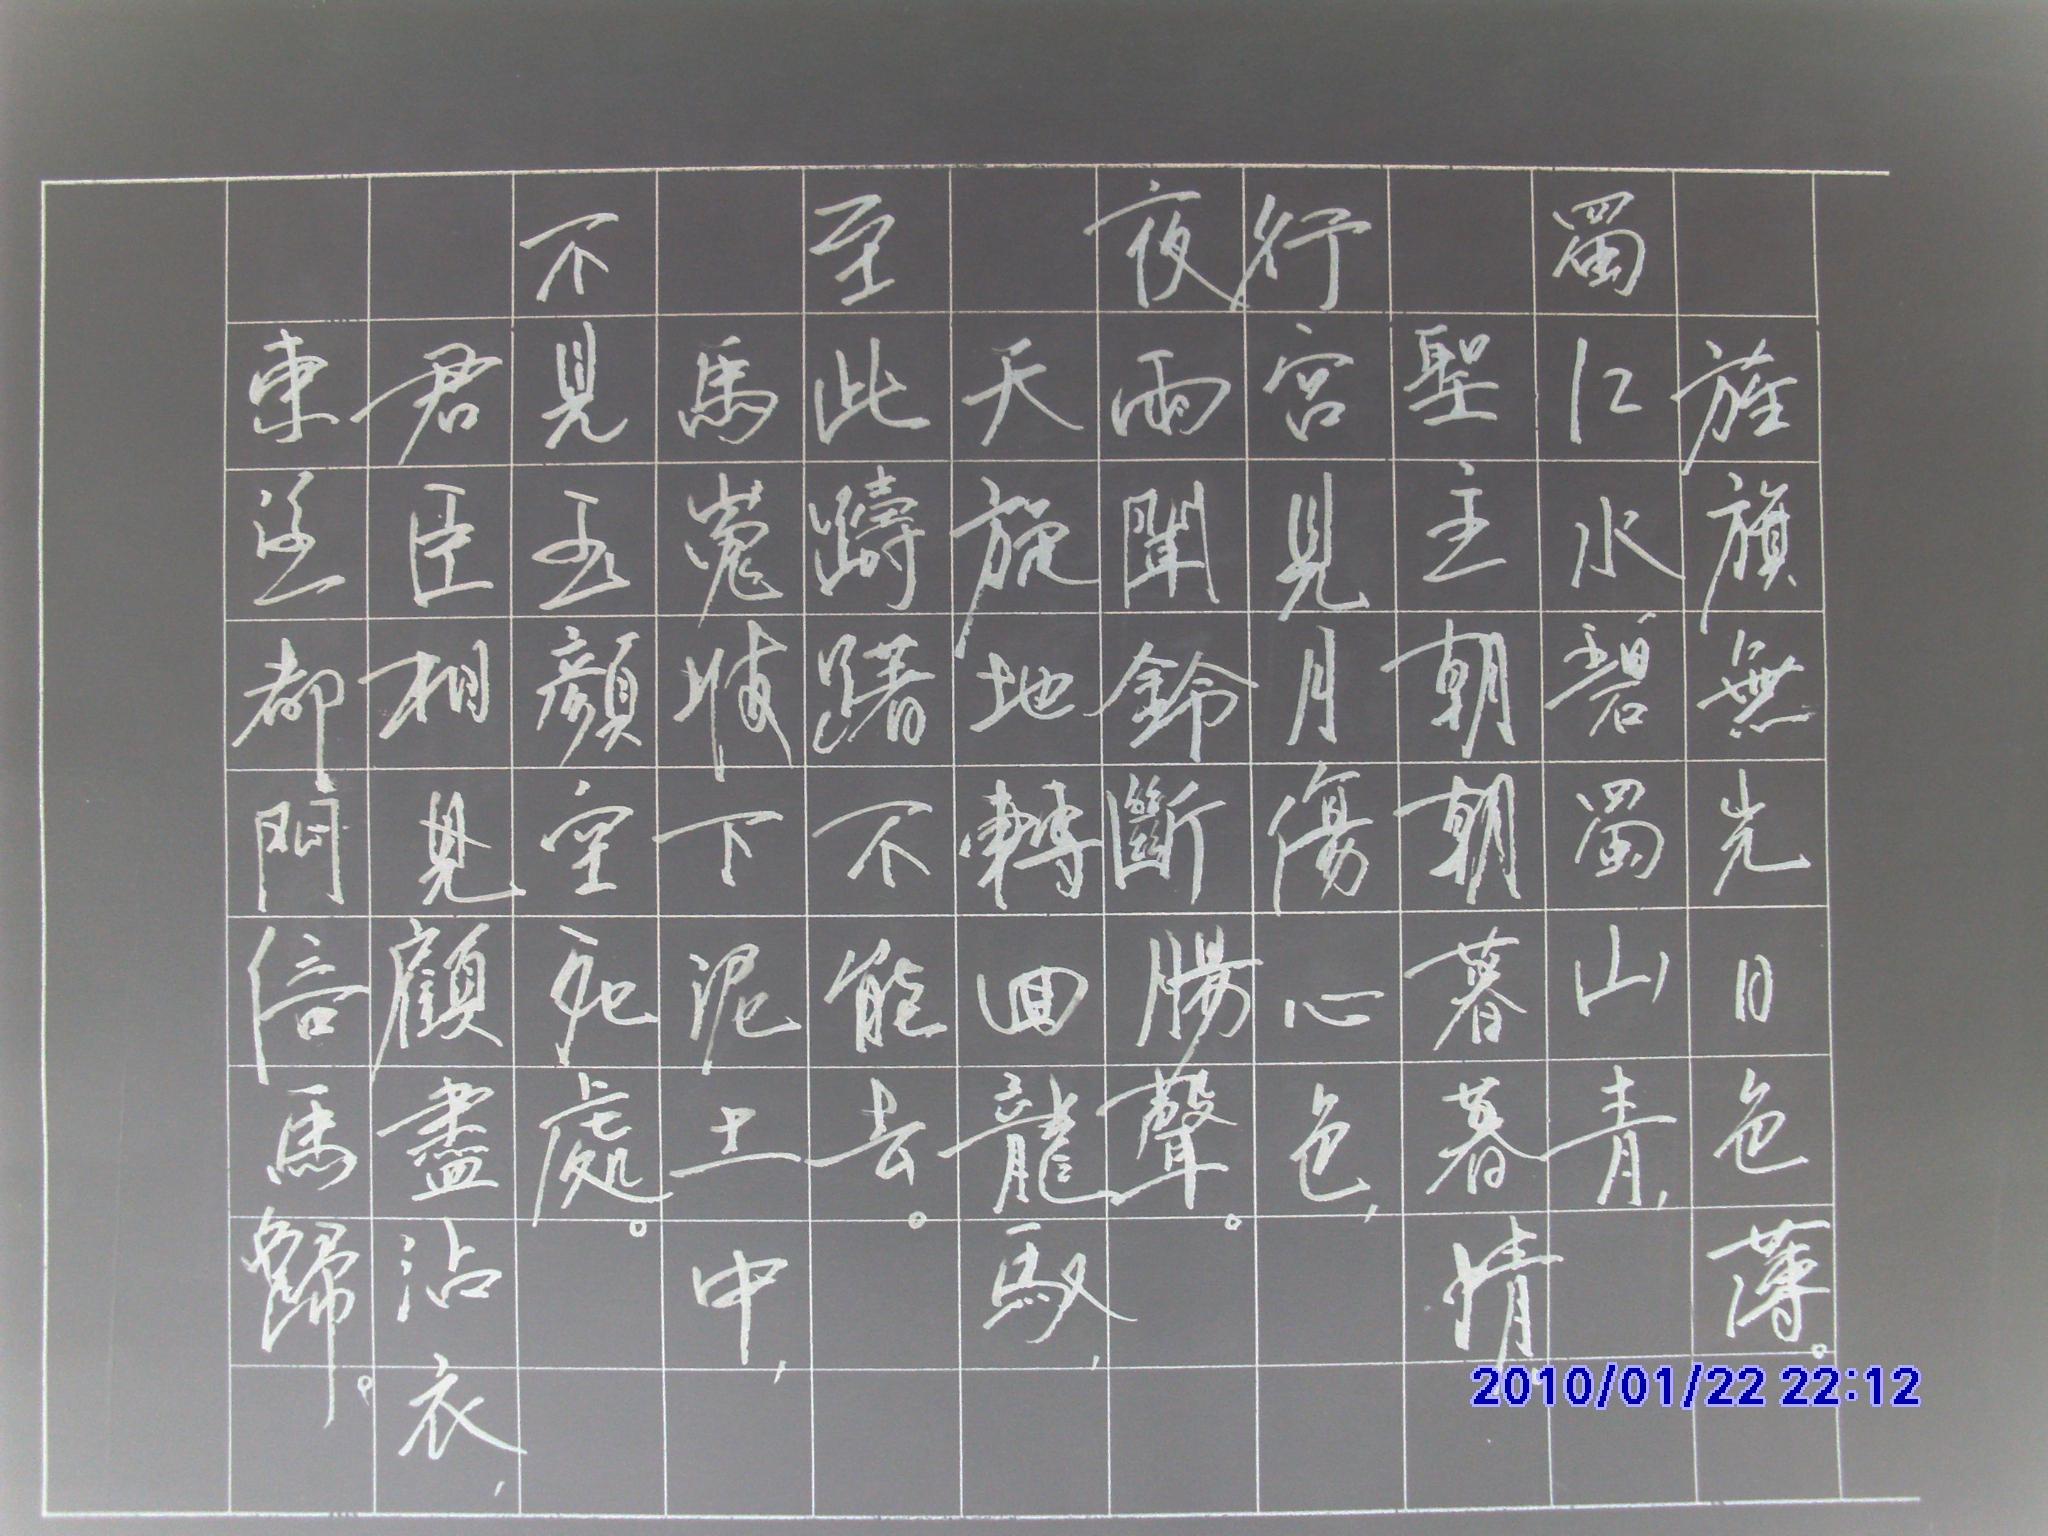 旌旗無光日色薄。
蜀江水碧蜀山青,
聖主朝朝暮暮情。
行宮見月傷心色,
夜雨聞鈴斷腸聲。
天旋地轉回龍馭,
至此躊躇不能去。
馬嵬坡下泥土中,
不見玉顏空死處。
君臣相見顧盡沾衣,
東望都門信馬歸。
2010/01/22 22:12